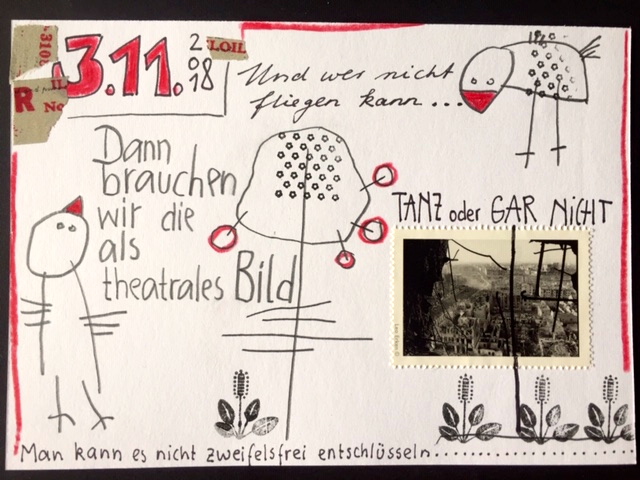 3.11. 2018
LOIL
3108
R
No
Und wer nicht
fliegen kann...
Dann
brauchen
wir die
als
theatrales Bild
TANZ oder GAR NICHT
Man kann es nicht zweifelsfrei entschlüsseln...